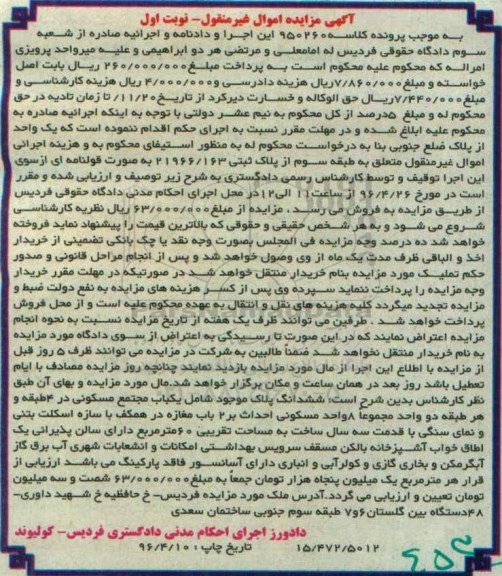 آگهی مزایده اموال غیرمنقول- نوبت اول
به موجب پرونده کلاسه ۹۵۰۲۶۰ این اجرا و دادنامه و اجرائیه صادره از شعبه
سوم دادگاه حقوقی فردیس له امامعلی و مرتضی هر دو ابراهیمی و علیه میرواحد پرویزی
امراله که محکوم علیه محکوم است به پرداخت مبلغ ۲۶۰/۰۰۰/۰۰۰ ریال بابت اصل
خواسته و مبلغ ۷/۸۶۰/۰۰۰ریال هزینه دادرسی و ۴/۰۰۰/۰۰۰ ریال هزینه کارشناسی و
مبلغ ۷/۴۴۰/۰۰۰ریال حق الوکاله و خسارت دیرکرد از تاریخ ۱۱/۲۰/ تا زمان تادیه در حق
محکوم له و مبلغ ۵درصد از کل محکوم به نیم عشر دولتی با توجه به اینکه اجرائیه صادره به
محکوم علیه ابلاغ شده و در مهلت مقرر نسبت به اجرای حکم اقدام ننموده است که یک واحد
از پلاک ضلع جنوبی بنا به درخواست محکوم له به منظور استیفای محکوم به و هزینه اجرائی
اموال غیرمنقول متعلق به طبقه سوم از پلاک ثبتی ۲۱۹۶۶/۱۶۳ به صورت قولنامه ای ازسوی
این اجرا توقیف و توسط کارشناس رسمی دادگستری به شرح زیر توصیف و ارزیابی شده و مقرر
است در مورخ ۹۶/۴/۲۶ از ساعت ۱۱ الی۱۲در محل اجرای احکام مدنی دادگاه حقوقی فردیس
از طریق مزایده به فروش می رسد . مزایده از مبلغ ۶۳/۰۰۰/۰۰۰ریال نظریه کارشناسی
شروع می شود و به هر شخص حقیقی و حقوقی که بالاترین قیمت را پیشنهاد نماید فروخته
خواهد شد ده درصد وجه مزایده فی المجلس بصورت وجه نقد یا چک بانکی تضمینی از خریدار
اخذ و الباقی ظرف مدت یک ماه از وی وصول خواهد شد و پس از انجام مراحل قانونی و صدور
حکم تملیک مورد مزایده بنام خریدار منتقل خواهد شد در صورتیکه در مهلت مقرر خریدار
وجه مزایده را پرداخت ننماید سپرده وی پس از کسر هزینه های مزایده به نفع دولت ضبط و
مزایده تجدید میگردد کلیه هزینه های نقل و انتقال به عهده محکوم علیه است و از محل فروش
پرداخت خواهد شد . طرفین می توانند ظرف یک هفته از تاریخ مزایده نسبت به نحوه انجام
مزایده اعتراض نمایند که در این صورت تا رسیدگی به اعتراض از سوی دادگاه مورد مزایده
به نام خریدار منتقل نخواهد شد ضمناً طالبین به شرکت در مزایده می توانند ظرف ۵ روز قبل
از مزایده با اطلاع این اجرا از مال مورد مزایده بازدید نمایند چنانچه روز مزایده مصادف با ایام
تعطیل باشد روز بعد در همان ساعت و مکان برگزار خواهد شد.مال مورد مزایده و بهای آن طبق
نظر کارشناس بدین شرح است: ششدانگ پلاک موجود شامل یکباب مجتمع مسکونی در ۴طبقه و
هر طبقه دو واحد مجموعاً ۸واحد مسکونی احداث بر ۲ باب مغازه در همکف با سازه اسکلت بتنی
و نمای سنگی با قدمت سه سال ساخت به مساحت تقریبی ۶۰مترمربع دارای سالن پذیرائی یک
اطاق خواب آشپزخانه بالکن مسقف سرویس بهداشتی امکانات و انشعابات شهری آب برق گاز
آبگرمکن و بخاری گازی و کولرآبی و انباری دارای آسانسور فاقد پارکینگ می باشد ارزیابی از
قرار هر مترمربع یک میلیون پنجاه هزار تومان جمعاً به مبلغ ۶۳/۰۰۰/۰۰۰ شصت و سه میلیون
تومان تعیین و ارزیابی می گردد.آدرس ملک مورد مزایده فردیس- خ حافظیه خ شهید داوری-
۴۸دستگاه بین گلستان ۶و۷ طبقه سوم جنوبی ساختمان سعدی
دادورز اجرای احکام مدنی دادگستری فردیس- کولیوند
۱۵/۴۷۲/۵۰۱۲ تاریخ چاپ : ۹۶/۴/۱۰